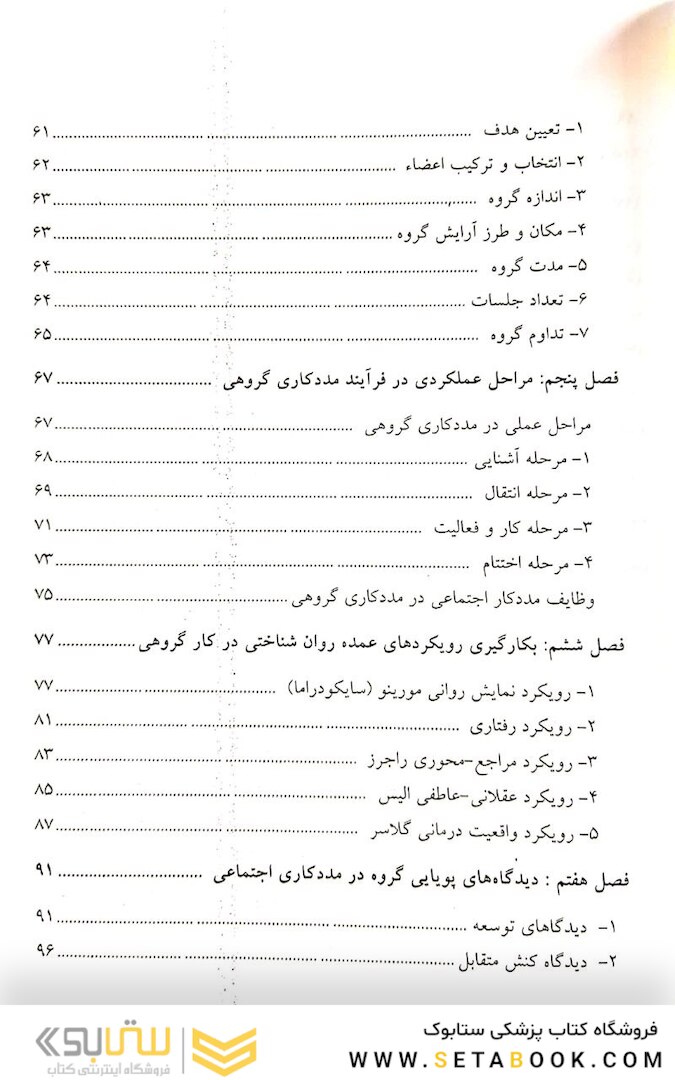 ۱- تعیین هدف ........ ۶۱
۲- انتخاب و ترکیب اعضاء ........ ۶۲
۳- اندازه گروه ........ ۶۳
۴- مکان و طرز آرایش گروه ........ ۶۳
۵- مدت گروه ........ ۶۴
۶- تعداد جلسات ........ ۶۴
۷- تداوم گروه ........ ۶۵
فصل پنجم: مراحل عملکردی در فرآیند مددکاری گروهی ........ ۶۷
مراحل عملی در مددکاری گروهی ........ ۶۷
۱- مرحله آشنایی ........ ۶۸
۲- مرحله انتقال ........ ۶۹
۳- مرحله کار و فعالیت ........ ۷۱
۴- مرحله اختتام ........ ۷۳
وظایف مددکار اجتماعی در مددکاری گروهی ........ ۷۵
فصل ششم: بکارگیری رویکردهای عمده روان شناختی در کار گروهی ........ ۷۷
۱- رویکرد نمایش روانی مورینو (سایکودراما) ........ ۷۷
۲- رویکرد رفتاری ........ ۸۱
۳- رویکرد مراجع-محوری راجرز ........ ۸۳
۴- رویکرد عقلانی-عاطفی الیس ........ ۸۵
۵- رویکرد واقعیت درمانی گلاسر ........ ۸۷
فصل هفتم : دیدگاه‌های پویایی گروه در مددکاری اجتماعی ........ ۹۱
۱- دیدگاهای توسعه ........ ۹۱
۲- دیدگاه کنش متقابل ........ ۹۶
فروشگاه کتاب پزشکی ستابوک
WWW.SETABOOK.COM
ستابوک
فروشگاه اینترنتی کتاب